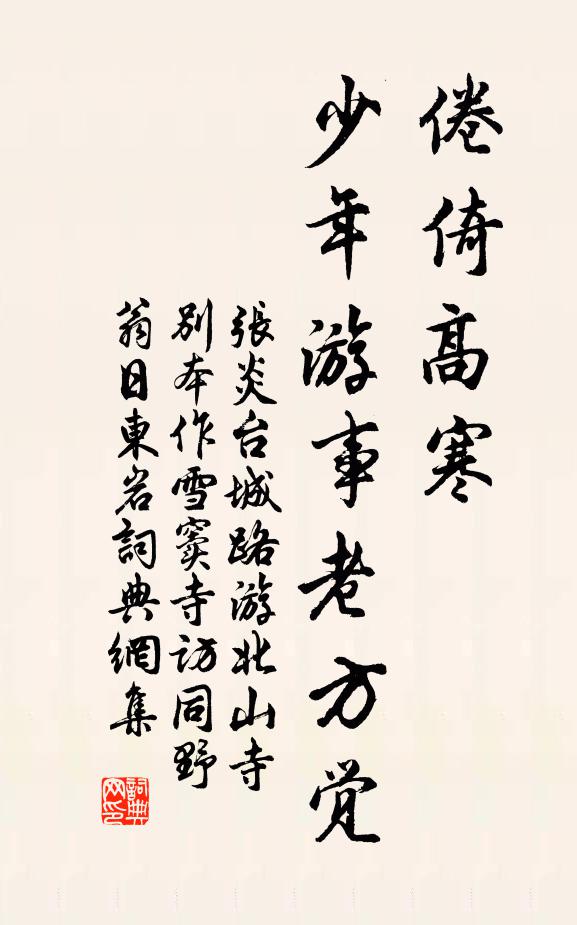 倦倚高寒
少年游事老方觉
張炎台城路游北山寺
别本作雪窦寺訪同野
翁日東岩詞典網集
詞典
网印